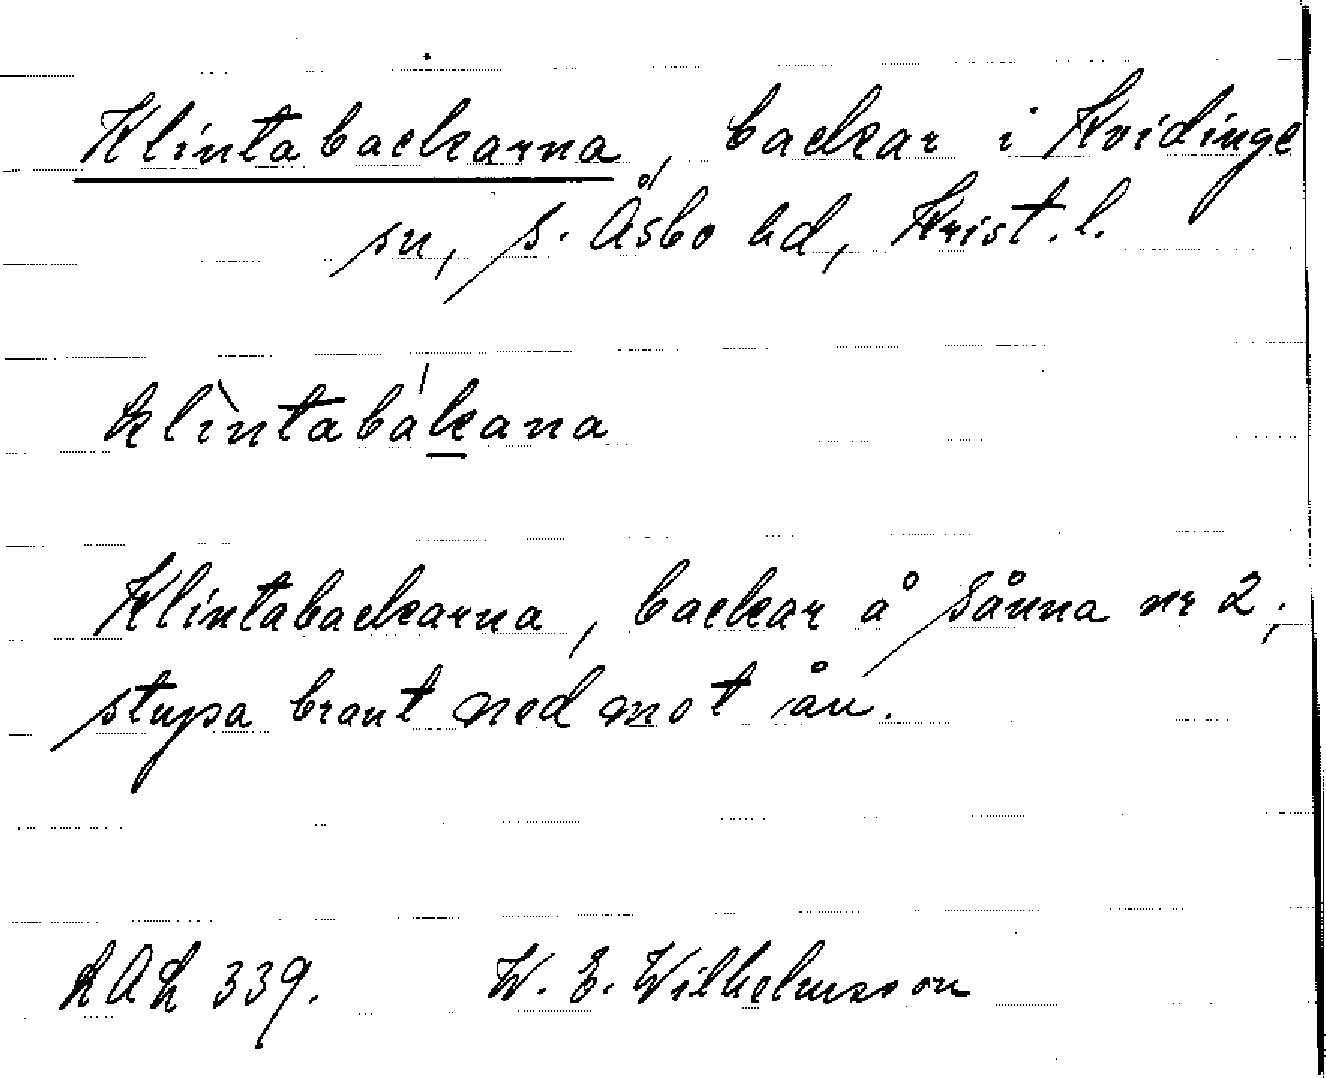 Klintabackarna, backar i Kvidinge
sn, S. Åsbo hd, Krist. l.
klìntabákana
Klintabackarna, backar å Sånna nr 2;
stupa brant ned mot ån.
LAL 339. W. E. Wilhelmsson